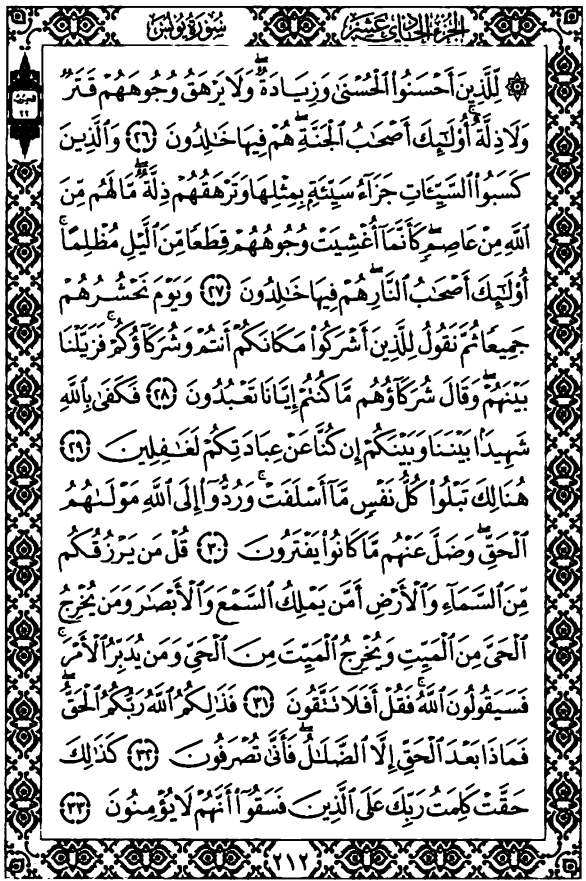 الجزء الحادي عشر
سورة يونس
۞ لِّلَّذِينَ أَحْسَنُوا۟ ٱلْحُسْنَىٰ وَزِيَادَةٌ ۖ وَلَا يَرْهَقُ وُجُوهَهُمْ قَتَرٌ
وَلَا ذِلَّةٌ ۚ أُو۟لَٰٓئِكَ أَصْحَٰبُ ٱلْجَنَّةِ ۖ هُمْ فِيهَا خَٰلِدُونَ ٢٦ وَٱلَّذِينَ
كَسَبُوا۟ ٱلسَّيِّـَٔاتِ جَزَآءُ سَيِّئَةٍۭ بِمِثْلِهَا وَتَرْهَقُهُمْ ذِلَّةٌ ۖ مَّا لَهُم مِّنَ
ٱللَّهِ مِنْ عَاصِمٍ ۖ كَأَنَّمَآ أُغْشِيَتْ وُجُوهُهُمْ قِطَعًا مِّنَ ٱلَّيْلِ مُظْلِمًا ۚ
أُو۟لَٰٓئِكَ أَصْحَٰبُ ٱلنَّارِ ۖ هُمْ فِيهَا خَٰلِدُونَ ٢٧ وَيَوْمَ نَحْشُرُهُمْ
جَمِيعًا ثُمَّ نَقُولُ لِلَّذِينَ أَشْرَكُوا۟ مَكَانَكُمْ أَنتُمْ وَشُرَكَآؤُكُمْ ۚ فَزَيَّلْنَا
بَيْنَهُمْ ۖ وَقَالَ شُرَكَآؤُهُم مَّا كُنتُمْ إِيَّانَا تَعْبُدُونَ ٢٨ فَكَفَىٰ بِٱللَّهِ
شَهِيدًۢا بَيْنَنَا وَبَيْنَكُمْ إِن كُنَّا عَنْ عِبَادَتِكُمْ لَغَٰفِلِينَ ٢٩
هُنَالِكَ تَبْلُوا۟ كُلُّ نَفْسٍ مَّآ أَسْلَفَتْ ۚ وَرُدُّوٓا۟ إِلَى ٱللَّهِ مَوْلَىٰهُمُ
ٱلْحَقِّ ۖ وَضَلَّ عَنْهُم مَّا كَانُوا۟ يَفْتَرُونَ ٣٠ قُلْ مَن يَرْزُقُكُم
مِّنَ ٱلسَّمَآءِ وَٱلْأَرْضِ أَمَّن يَمْلِكُ ٱلسَّمْعَ وَٱلْأَبْصَٰرَ وَمَن يُخْرِجُ
ٱلْحَىَّ مِنَ ٱلْمَيِّتِ وَيُخْرِجُ ٱلْمَيِّتَ مِنَ ٱلْحَىِّ وَمَن يُدَبِّرُ ٱلْأَمْرَ ۚ
فَسَيَقُولُونَ ٱللَّهُ ۚ فَقُلْ أَفَلَا تَتَّقُونَ ٣١ فَذَٰلِكُمُ ٱللَّهُ رَبُّكُمُ ٱلْحَقُّ ۖ
فَمَاذَا بَعْدَ ٱلْحَقِّ إِلَّا ٱلضَّلَٰلُ ۖ فَأَنَّىٰ تُصْرَفُونَ ٣٢ كَذَٰلِكَ
حَقَّتْ كَلِمَتُ رَبِّكَ عَلَى ٱلَّذِينَ فَسَقُوٓا۟ أَنَّهُمْ لَا يُؤْمِنُونَ ٣٣
٢١٢